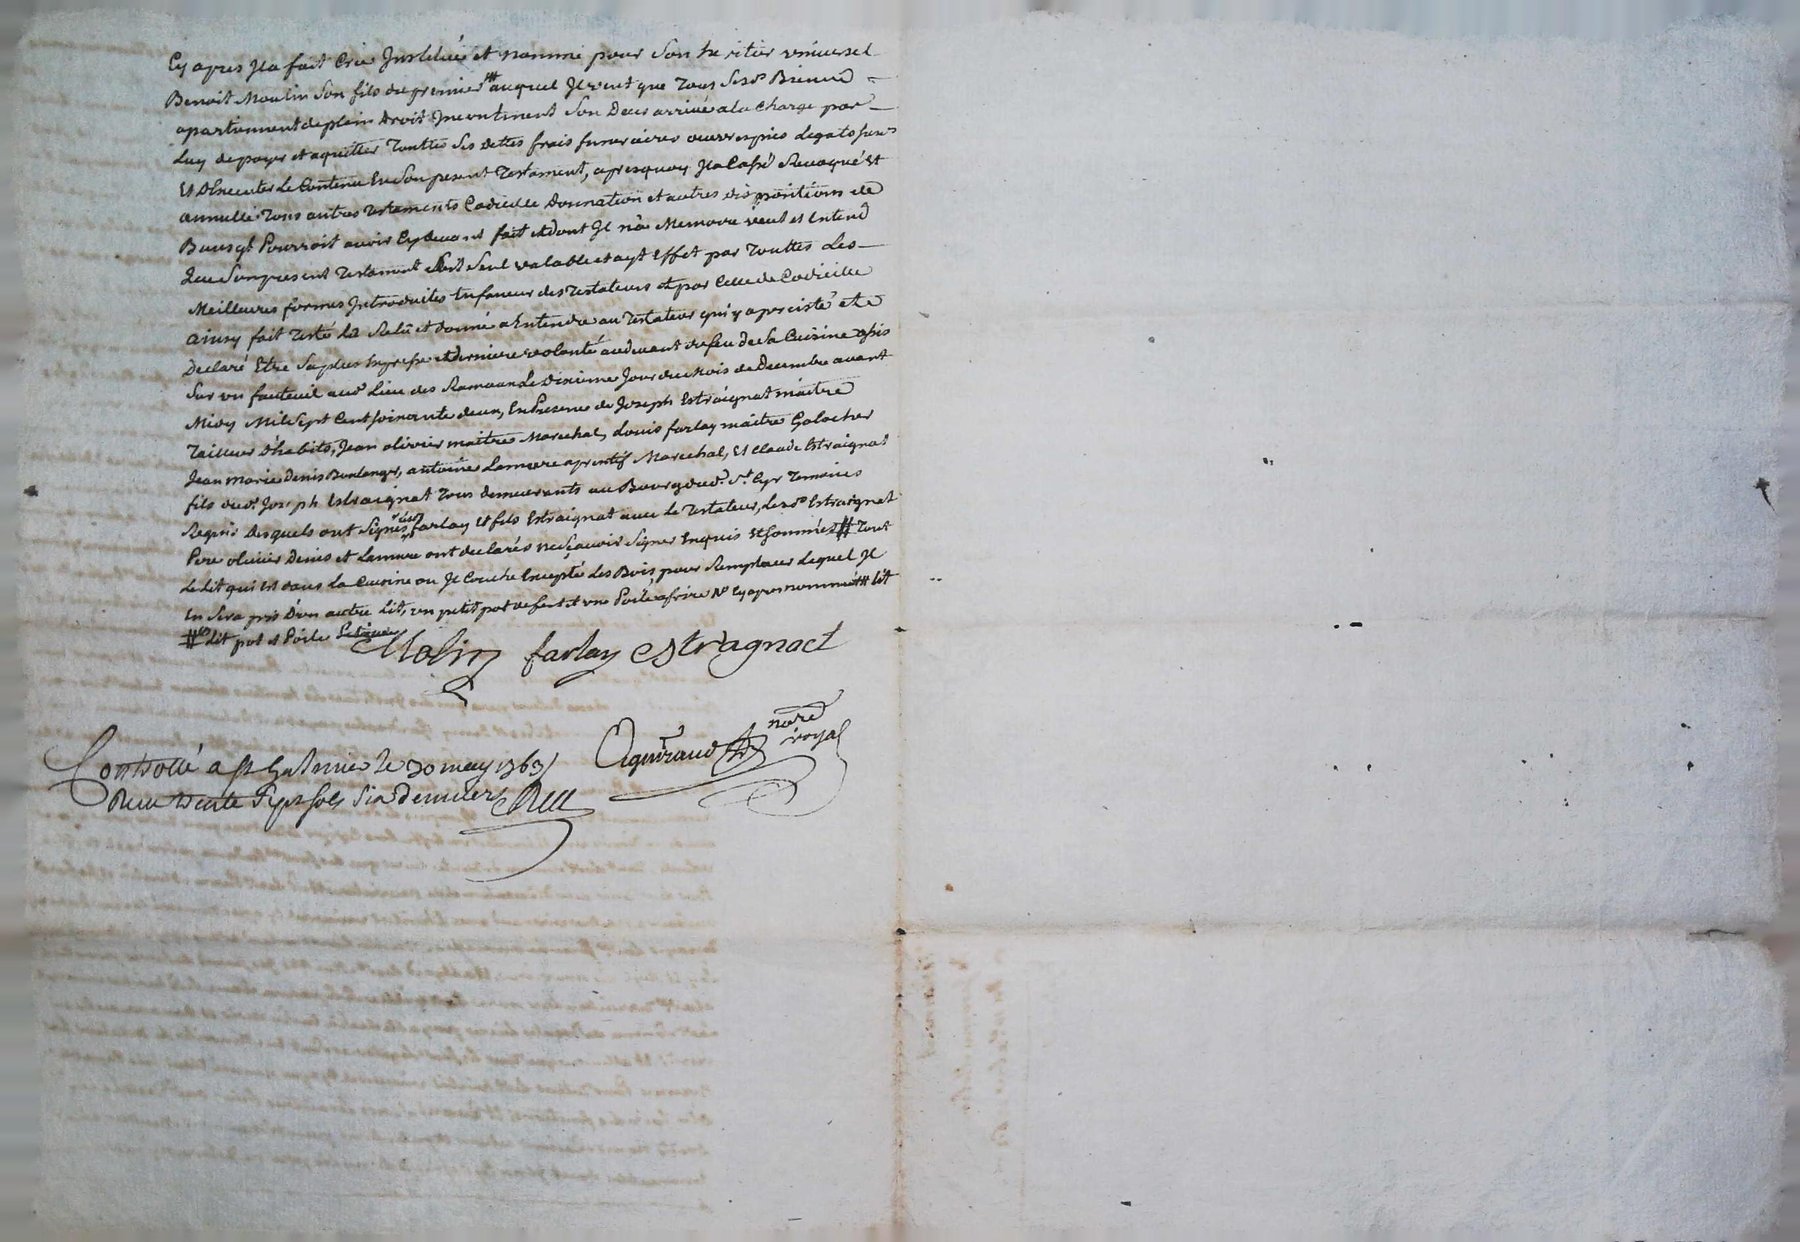 Cy apres Jl a fait Crée Jnstitué et nommé pour son heritier universel
Benoit Moulin son fils du premier # auquel Jl veut que tous sesd. Biens
apartiennent de plein Droit Jncontinent son Deces arrivé a la Charge par
Luy de payer et aquitter touttes ses dettes frais funeraires œuvres pies Legats susd.
Et d'Executer Le Contenu En son present testament, apres quoy Jl a Cassé Revoqué et
annullé tous autres testaments Codicille Donnation et autres dispositions de
Biens qu'Jl Pourroit avoir Cydevant fait et dont Jl n'a Memoire veut et Entend
Que son present testament soit seul valable et ayt Effet par touttes Les
Meilleures formes Jntroduites En faveur des testateurs et par Celle de Codicille
ainsy fait testé Lû Relû et donné a Entendre au testateur qui y a persisté et a
Declaré Etre sa plus Expresse et derniere volonté au devant du feu de sa Cuisine assis
sur un fauteuil aud. Lieu des Le Dixieme Jour du Mois de Decembre avant
Midy Mil sept Cent soixante deux, En Presence de Joseph Estraignat maitre
tailleur d'habits, Jean olivier maitre Marechal, Louis farlay maitre Galocher
Jean marie Denis Boulanger, antoine Lamure aprentif Marechal, et Claude Estraignat
fils dud. Joseph Estraignat tous demeurants au Bourg dud. St. Cyr temoins
Requis desquels ont signés Lesd. farlay et fils Estraignat avec Le testateur, Lesd. Estraignat
Pere olivier Denis et Lamure ont declarés ne sçavoir signer Enquis et sommés # tout
Le Lit qui est dans La Cuisine ou Jl Couche Excepté Les Bois, pour Remplacer Lequel Jl
En sera pris d'un autre Lit, un petit pot de fert et une Poile a frire Cy apres nommé # Lit
# Lit pot et Poile
Molin farlay estragnact
Aguiraud nore royal
Controllé a st Galmier le 30 may 1763
Reçu trente sept sols six deniers